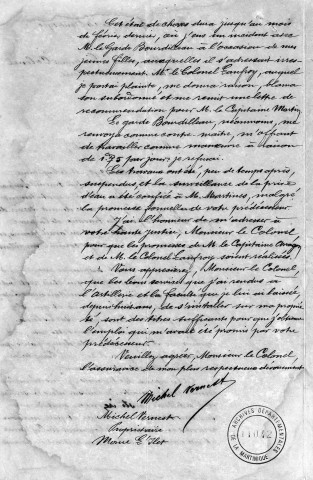 Cet état de choses dura jusqu'au mois
de février dernier, où j'eus un incident avec
M. le Garde Bourdillau à l'occasion de mes
jeunes filles, auxquelles il s'adressait irres-
pectueusement. M. le Colonel Laufroy, auquel
je portai plainte, me donna raison, blâma
son subordonné et me remit une lettre de
recommandation pour M. le Capitaine Martin.
Le garde Bourdillau, néanmoins, me
renvoya comme contre-maître, m'offrant
de travailler comme manœuvre à raison
de 1.95 par jour; je refusai.
Les travaux ont été, peu de temps après,
suspendus, et la surveillance de la prise
d'eau a été confiée à M. Martines, malgré
la promesse formelle de votre prédécesseur.
J'ai l'honneur de m'adresser à
votre haute justice, Monsieur le Colonel,
pour que les promesses de M. le Capitaine
et de M. le Colonel Laufroy soient réalisées.
Vous apprécierez, Monsieur le Colonel,
que les bons services que j'ai rendus à
l'Artillerie et la faculté que je lui ai laissée,
depuis huit ans, de s'installer sur ma proprié-
té, sont des titres suffisants pour que j'obtienne
l'emploi qui m'avait été promis par votre
prédécesseur.
Veuillez agréer, Monsieur le Colonel,
l'assurance de mon plus respectueux dévouement.
Michel Vernest
Michel Vernest
Propriétaire
Morne L'Ilet
ARCHIVES DÉPARTEMENTALES
DE LA MARTINIQUE